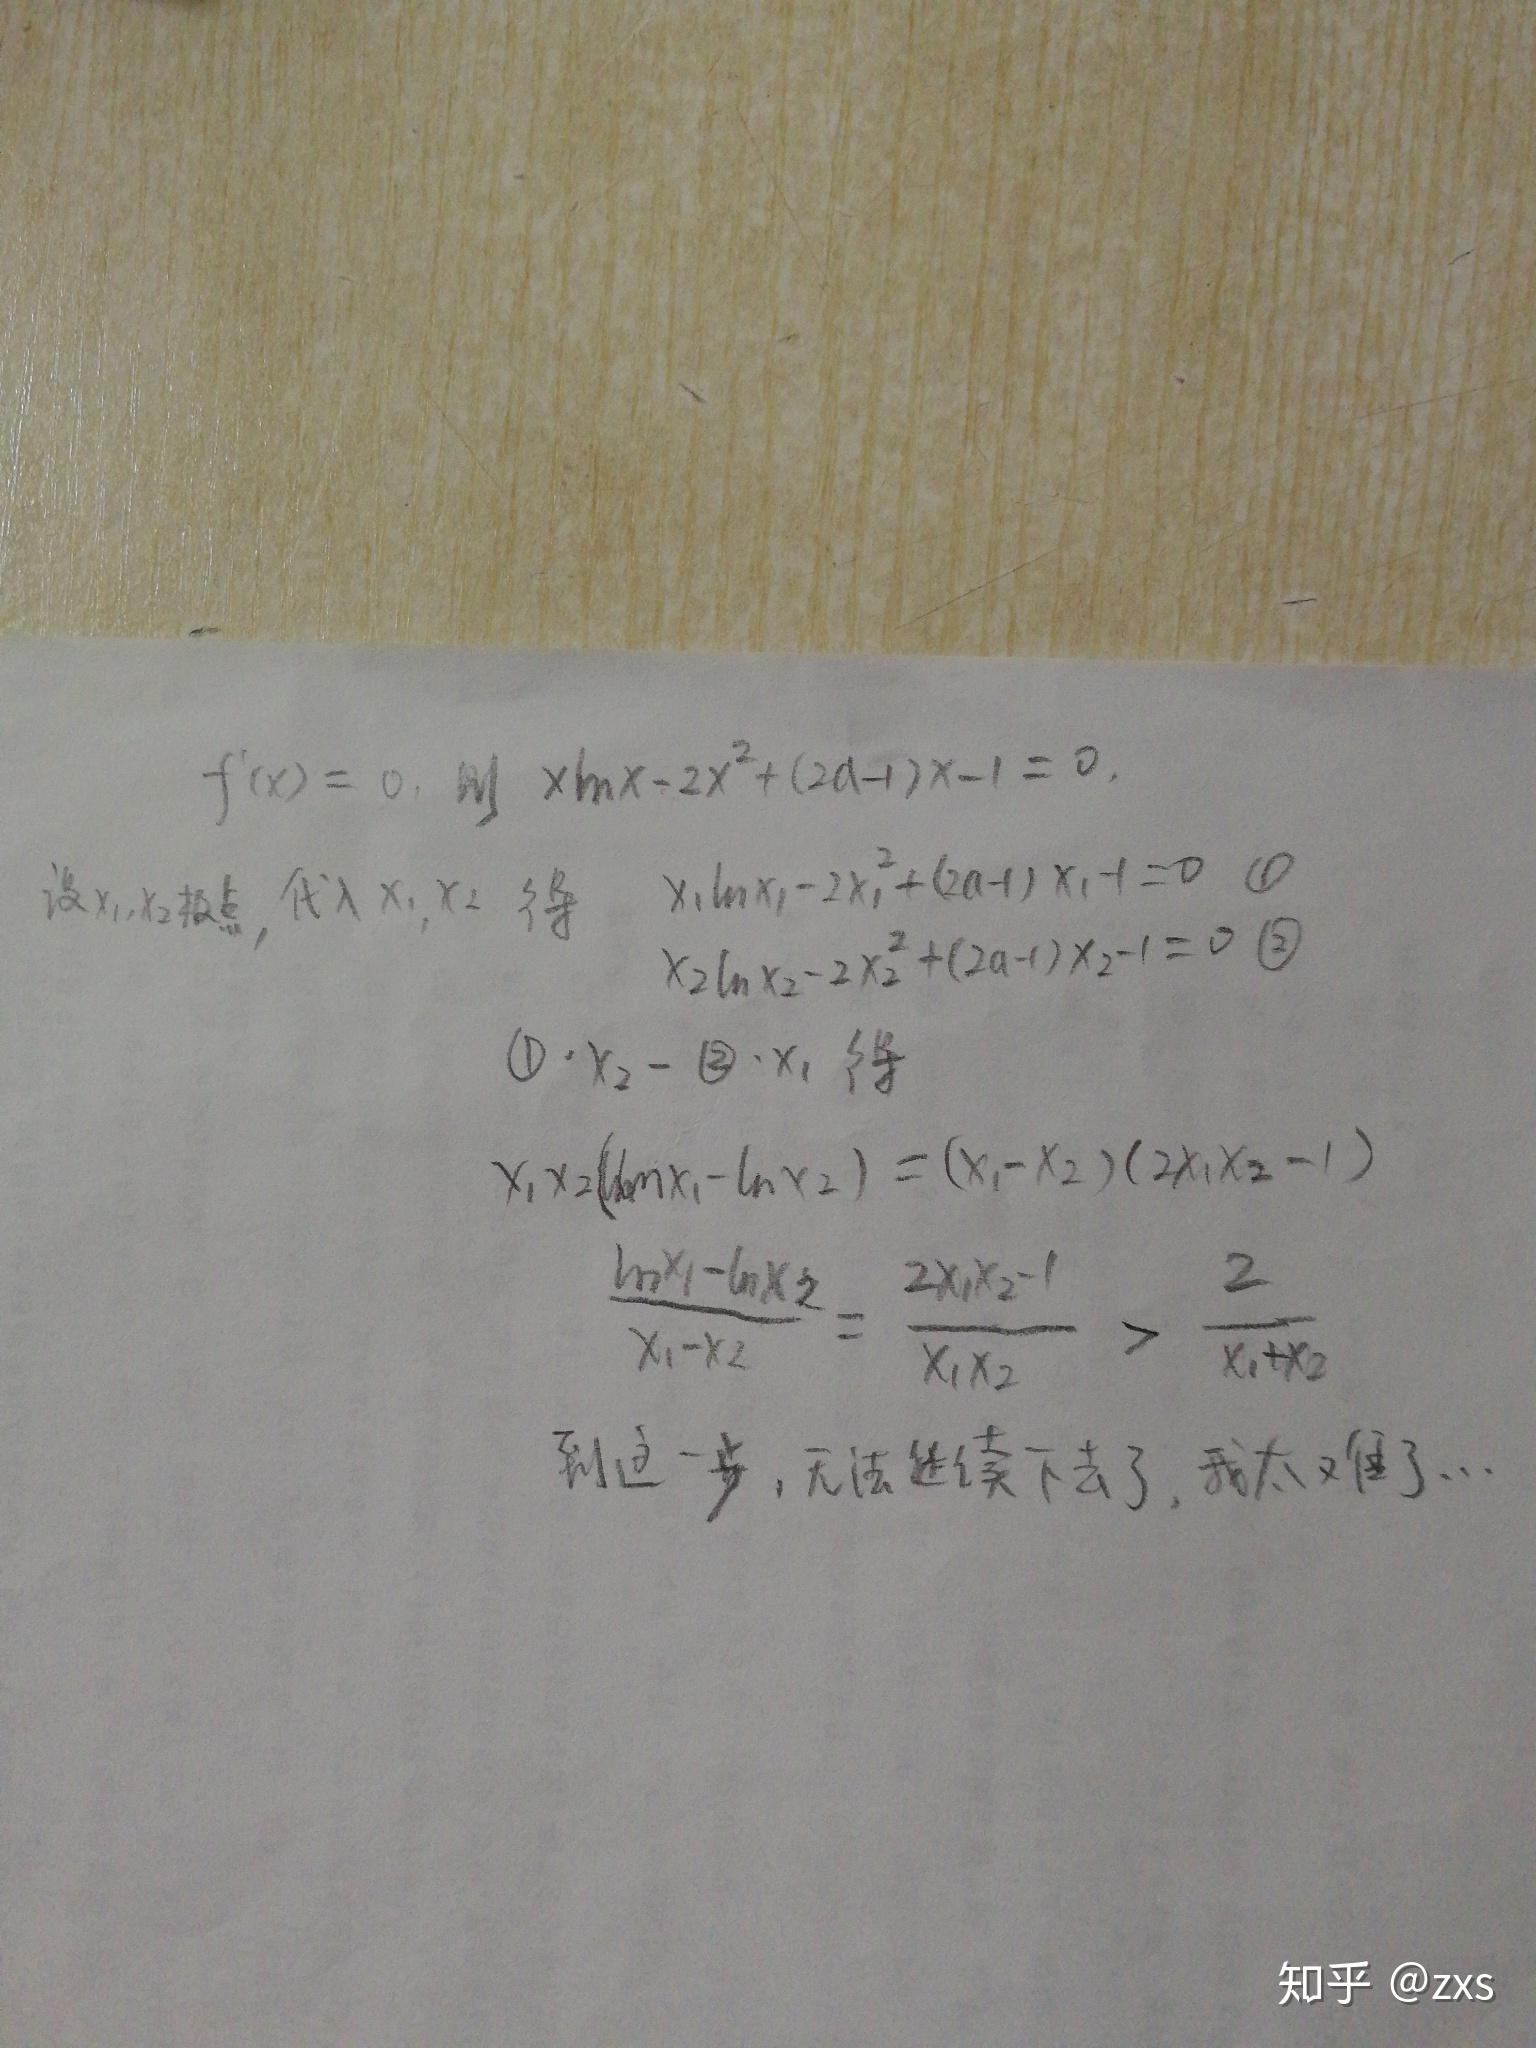 f'(x)=0, 则 xlnx-2x²+(2a-1)x-1=0.
设x₁,x₂极点, 代入x₁,x₂ 得 x₁lnx₁-2x₁²+(2a-1)x₁-1=0 ①
x₂lnx₂-2x₂²+(2a-1)x₂-1=0 ②
①·x₂-②·x₁ 得
x₁x₂(lnx₁-lnx₂)=(x₁-x₂)(2x₁x₂-1)
(lnx₁-lnx₂)/(x₁-x₂) = (2x₁x₂-1)/(x₁x₂) > 2/(x₁+x₂)
到这一步,无法继续下去了,我太难了...
知乎 @zxs